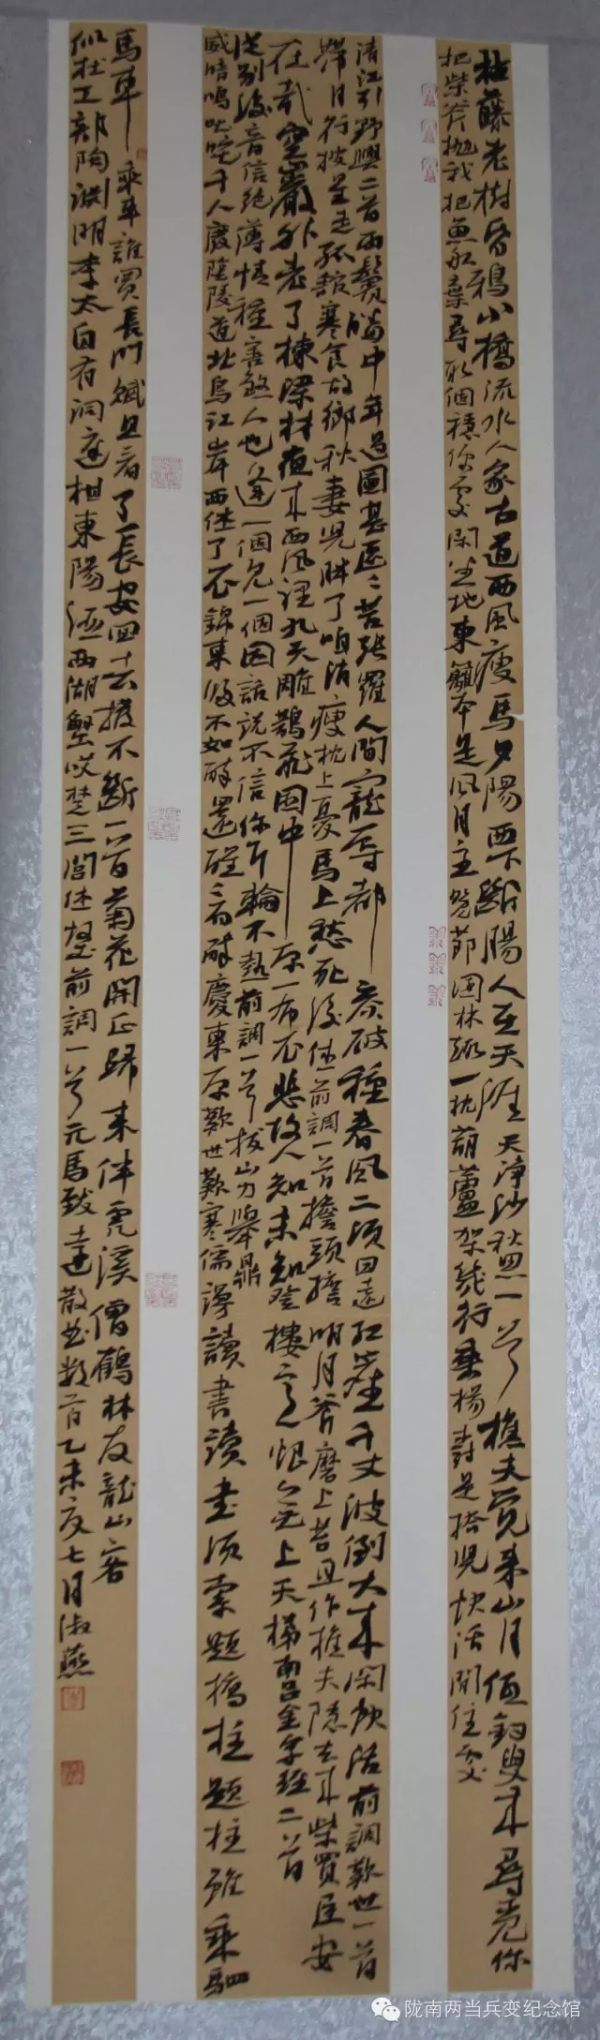 枯藤老樹昏鴉小橋流水人家古道西風瘦馬夕陽西下斷腸人在天涯天淨沙秋思一首樵夫覺來山月低釣叟來尋覓你
把柴斧拋我把魚船棄尋取個穩便處閑坐地東籬本是風月主晚節園林趣一枕葫蘆架幾行垂楊樹是搭兒快活閒住處
清江引野興二首兩鬢皤中年過圖甚區區苦張羅人間寵辱都參破種春風二頃田遠紅塵千丈波倒大來閑快活前調歎世一首
帶月行披星走孤館寒食故鄉秋妻兒胖了咱消瘦枕上憂馬上愁死後休前調一首擔頭擔明月斧磨上苔且作樵夫隱去來柴買臣安
在哉空巖外老了棟梁材夜來西風裡九天鵰鶚飛困中原一布衣悲故人知未知登樓意恨無上天梯南呂金字經二首
從別後音信絕薄情種害煞人也逢一個見一個因話說不信你耳輪不熱前調一首拔山力舉鼎
威喑嗚叱吒千人廢陰陵道北烏江岸西休了衣錦東歸不如醉還醒醒而醉慶東原歎世歎寒儒謾讀書讀書須索題橋柱題柱雖乘駟
馬車乘車誰買長門賦且看了長安回去擬不斷一首菊花開正歸來伴虎溪僧鶴林友龍山客
似杜工部陶淵明李太白有洞庭柑東陽酒西湖蟹哎楚三閭休怪前調一首元馬致遠散曲數首乙未夏七月淑燕
陇南两当兵变纪念馆